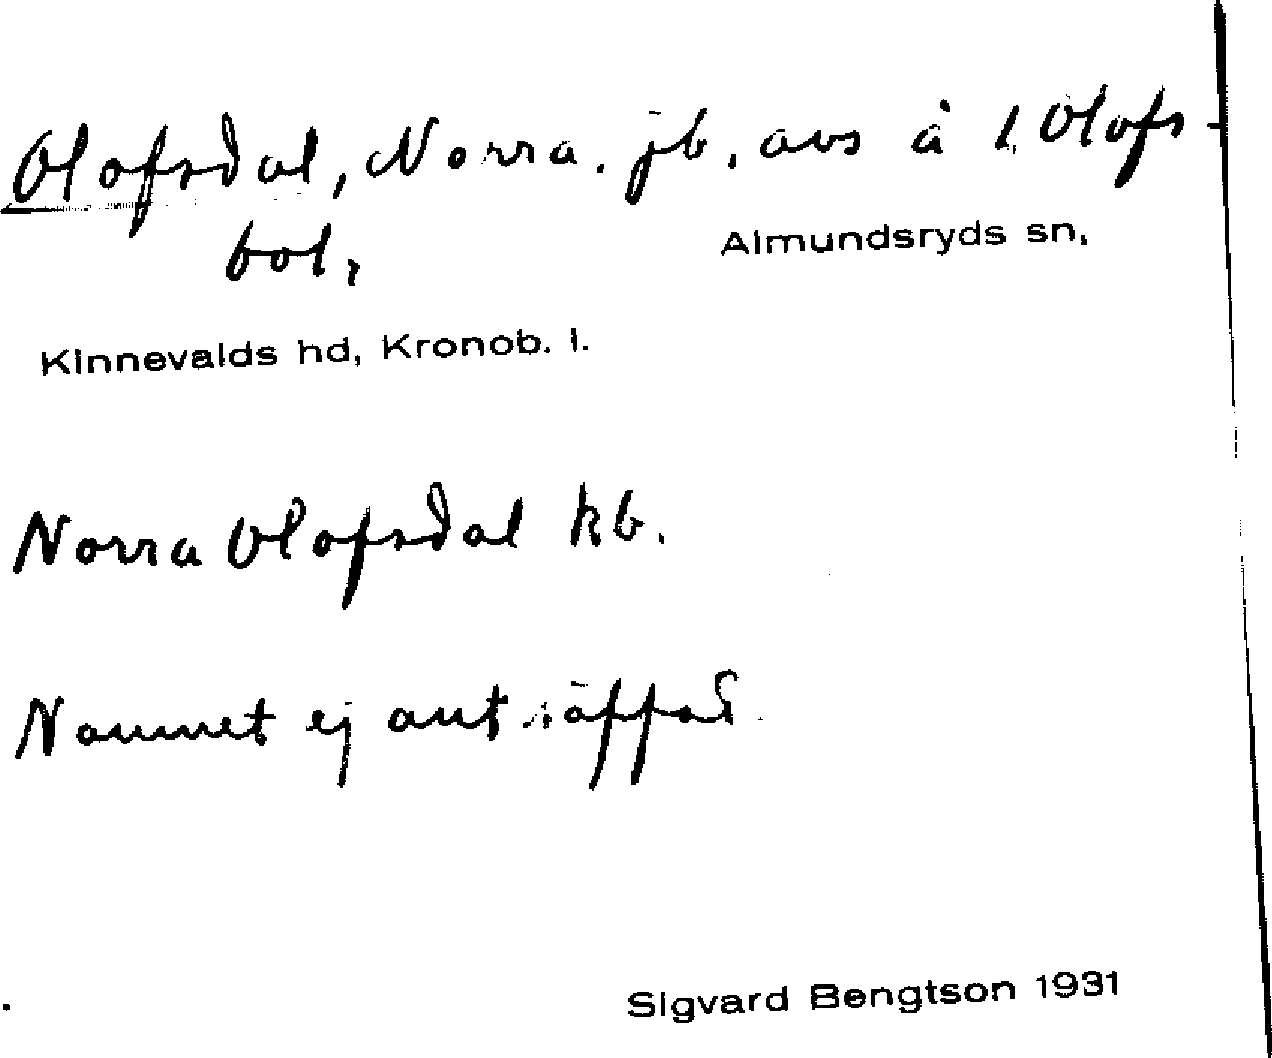 Olofsdal, Norra. jb, avs å 1 Olofs-
bol,
Almundsryds sn,
Kinnevalds hd, Kronob. l.
Norra Olofsdal kb.
Namnet ej anträffad.
Sigvard Bengtson 1931